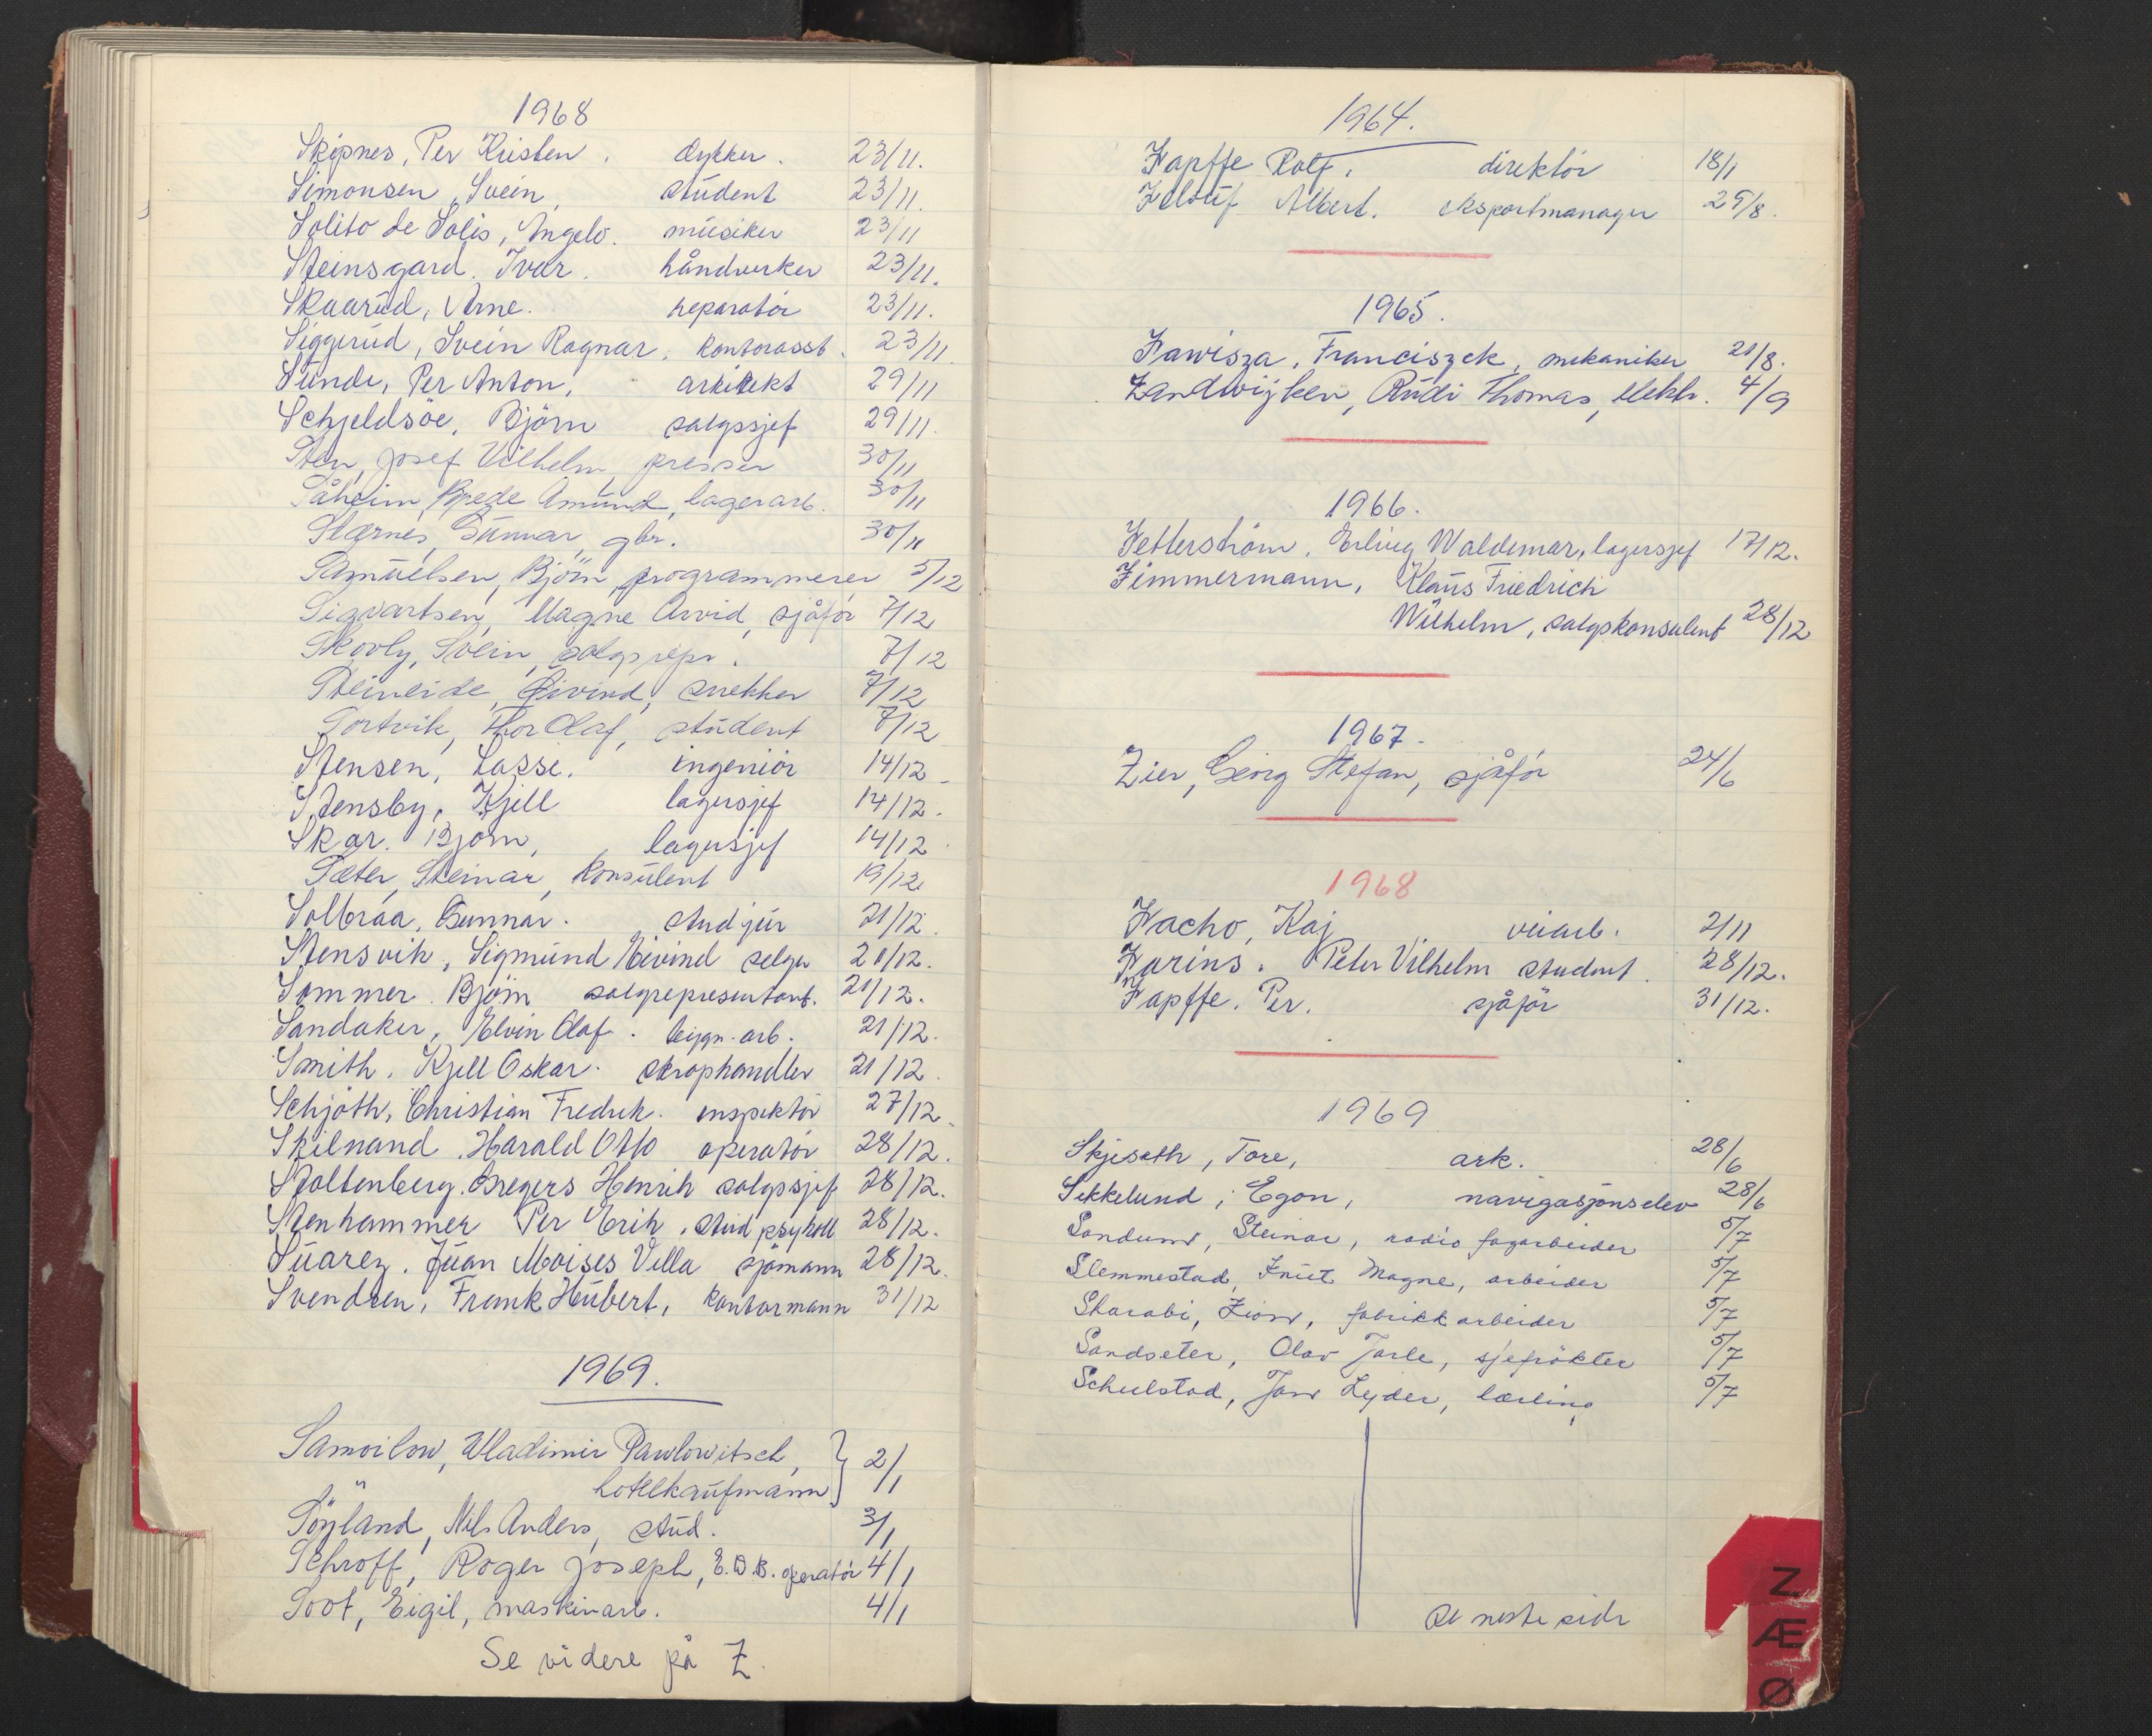 1968
Skipnes, Per Kristen, dykker. 23/11.
Simonsen, Svein, student 23/11.
Solito de Solis, Angelo. musiker 23/11
Steinsgard, Ivar. håndverker 23/11.
Skaarud, Arne. reparatör 23/11.
Siggerud, Svein Ragnar, kontorasst. 23/11
Sunde, Per Anton, arkitekt 29/11
Schjeldsöe, Björn salgssjef 29/11.
Sten, Josef Vilhelm, presser 30/11
Såheim, Brede Amund, lagerarb. 30/11
Stærnes, Gunnar, gbr. 30/11
Samuelsen, Björn, programmerer 5/12
Sigvartsen, Magne Arvid, sjåför 7/12
Skooly, Svein, salgsrepr. 7/12
Steineide, Øivind, snekker 7/12
Sortvik, Thor Olaf, student 7/12
Stensen, Lasse. ingeniör 14/12
Stensby, Kjell lagersjef 14/12.
Skar. Björn, lagersjef 14/12
Sæter, Steinar, konsulent 19/12
Solbraa, Gunnar. stud jur 21/12.
Stensvik, Sigmund Eivind selger 21/12.
Sommer. Björn salgsrepresentant. 21/12.
Sandaker, Elvin Olaf. bygn. arb. 21/12.
Smith, Kjell Oskar. skraphandler 21/12.
Schjöth, Christian Fredrik. inspektör 27/12.
Skilnand, Harald Otto operatör 28/12.
Stoltenberg. Gregers Henrik salgssjef 28/12.
Stenhammer Per Erik, stud psykoll 28/12.
Suarez. Juan Moises Villa sjömann 28/12.
Svendsen, Frank Hubert, kontormann 31/12
1969.
Samoilow, Wladimir Pawlowitsch,
hotelkaufmann } 2/1
Söyland, Nils Anders, stud. 3/1
Schroff, Roger Joseph, E.D.B. operatör 4/1
Soot, Eigil, maskinarb. 4/1
Se videre på Z.
1964.
Zapffe Rolf, direktör 18/1
Albert. eksportmanager 29/8.
1965.
Zawisza, Franciszek, mekaniker 21/8.
Zandwijken, Rudi Thomas, elektr. 4/9
1966.
Zetterström, Erling Waldemar, lagersjef 17/12.
Zimmermann, Klaus Friedrich
Wilhelm, salgskonsulent 28/12
1967.
Zier, Georg Stefan, sjåför 24/6
1968
Zacho, Kaj veiarb. 2/11
Zarins, Peter Vilhelm student. 28/12.
Zapffe, Per. sjåför 31/12.
1969
Skjiseth, Tore, ark. 28/6
Sekkelund, Egon, navigasjonselev 28/6
Sandum, Steinar, radio fagarbeider 5/7
Slemmestad, Knut Magne, arbeider 5/7
Sharabi, Zion, fabrikkarbeider 5/7
Sandseter, Olav Jarle, sjefrökter 5/7
Schulstad, Jan Lyder, lærling 5/7
Se neste side
Z
Æ
Ø